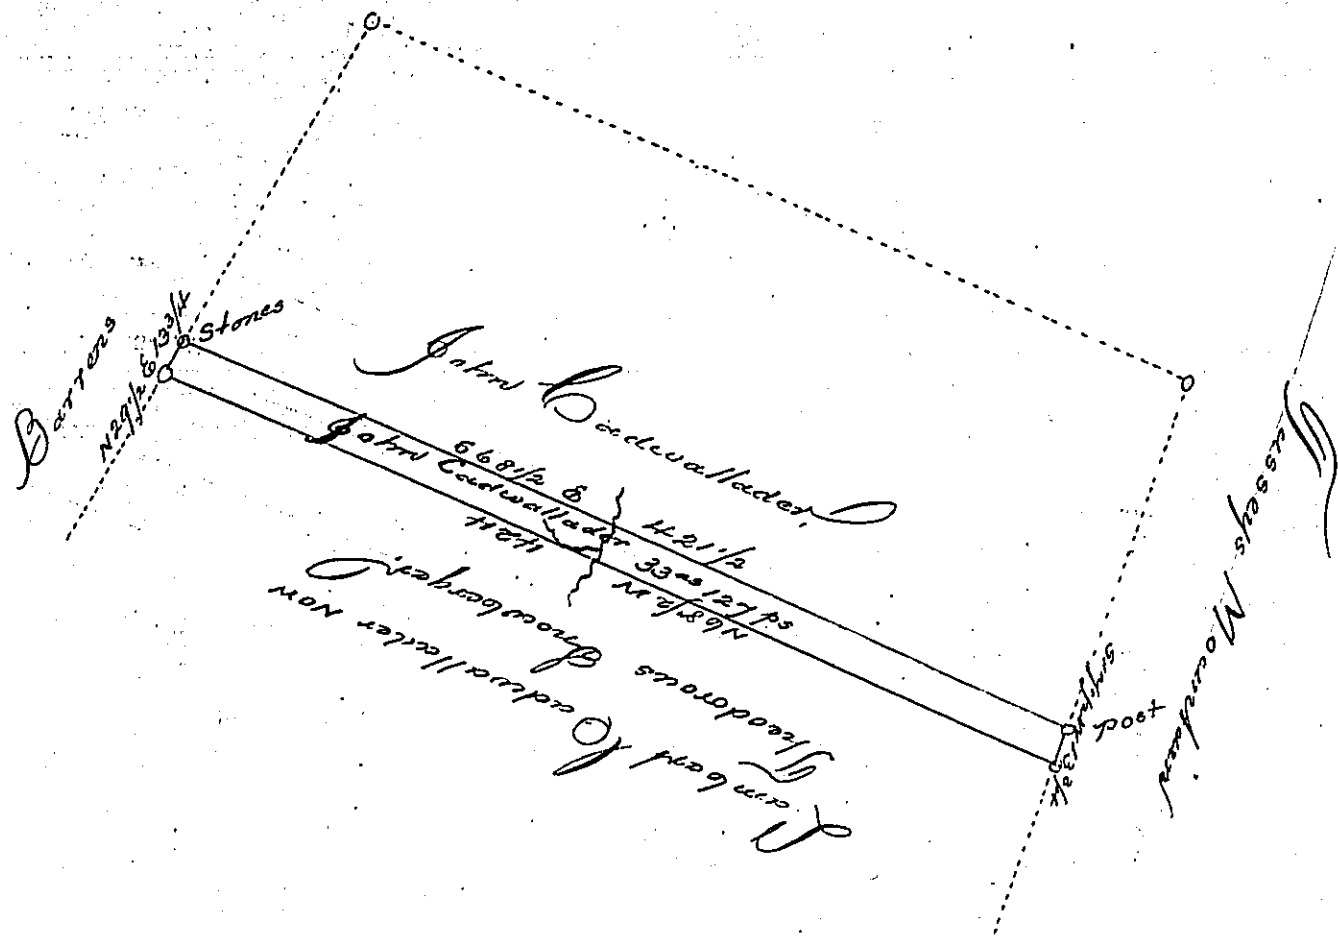 Barrens
N29 1/2 E 13 3/4
Stones
John Cadwallader
S 68 1/2 E 421 1/2
John Cadwallader 33 as 127 ps
N 68 1/2 W 424
Lambard Cadwallader Now
Theodorous Snowberger
13 3/4
Post
Tusseys Mountain